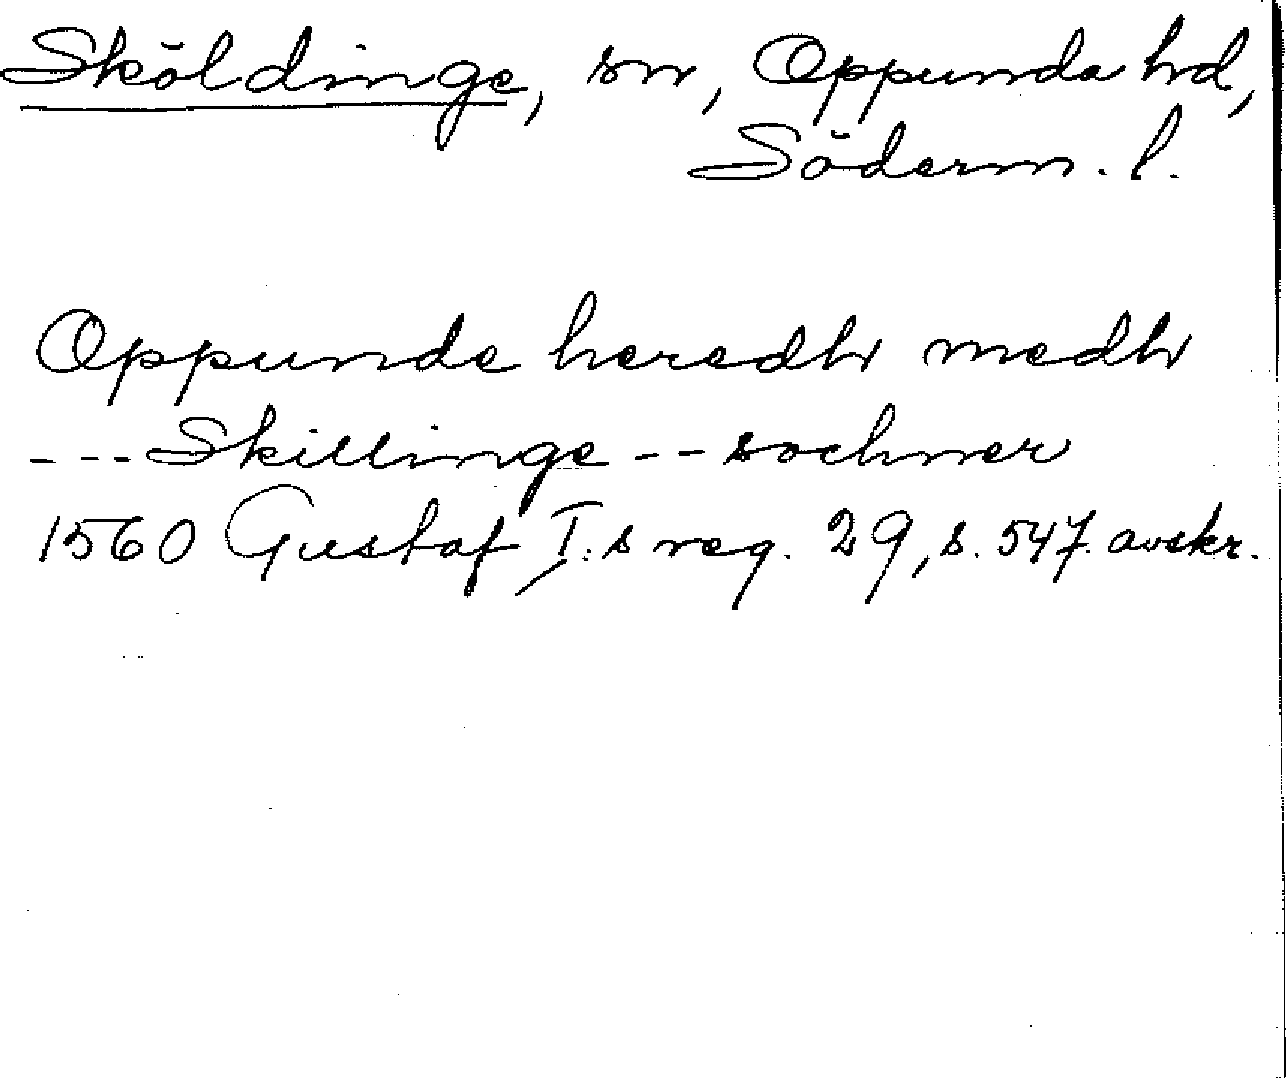 Sköldinge, sn, Oppunda hd,
Söderm. l.
Oppunde heredh medh
--- Skillinge -- sochner
1560 Gustaf I:s reg. 29, s. 547. avskr.